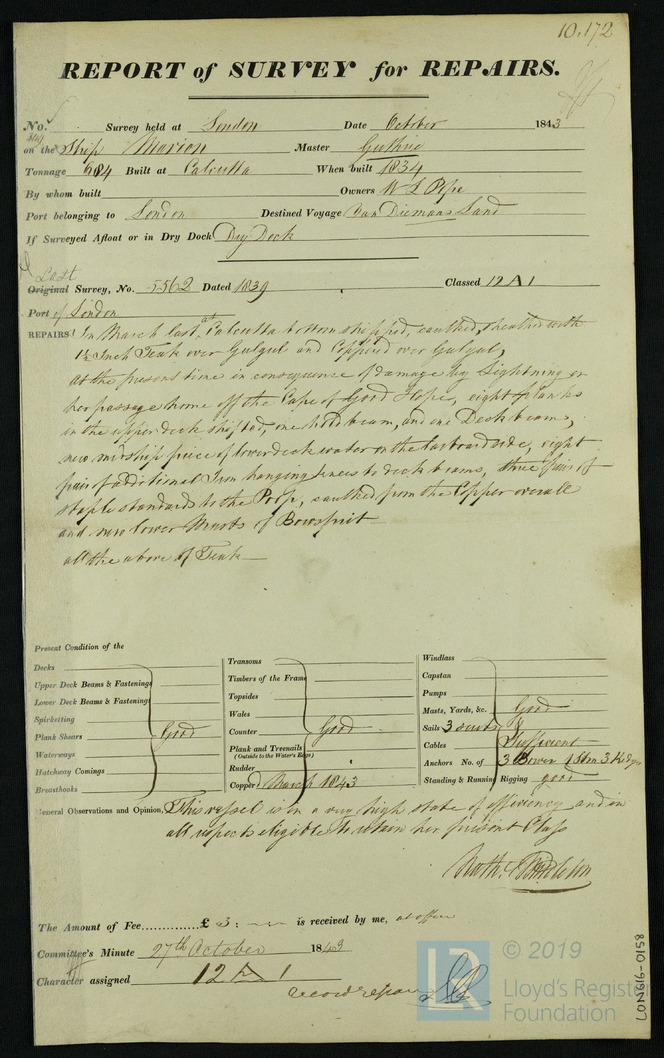 10,172
REPORT of SURVEY for REPAIRS.
No. Survey held at London Date October 1843
on the Ship Marion Master Guthrie
Tonnage 684 Built at Calcutta When built 1834
By whom built Owners W L Pope
Port belonging to London Destined Voyage Van Diemans Land
If Surveyed Afloat or in Dry Dock Dry Dock
Last
Original Survey, No. 5562 Dated 1839 Classed 12 A 1
Port of London
REPAIRS! In March last, at Calcutta bottom stripped, caulked, sheathed with
1½ Inch Teak over Gulgul and Coppered over Gulgul,
at the present time in consequence of damage by Lightning on
her passage home off the Cape of Good Hope, eight planks
in the upper deck shifted, one hold beam, and one Deck beam,
new midship piece of lower deck water on the larboard side, eight
pair of additional Iron hanging knees to deck beams, three pair of
staple standards to the Poop, caulked from the Copper overall
and new lower Masts & Bowsprit
all the above of Teak
Present Condition of the
Decks
Upper Deck Beams & Fastenings
Lower Deck Beams & Fastenings
Spirketting
Plank Shears Good
Waterways
Hatchway Comings
Breasthooks
Transoms
Timbers of the Frame
Topsides
Wales
Counter Good
Plank and Treenails
(Outside to the Water's Edge)
Rudder
Copper March 1843
Windlass
Capstan
Pumps
Masts, Yards, &c. Good
Sails 3 suits
Cables Sufficient
Anchors No. of 3 Bower 1 Stm 3 Kedges
Standing & Running Rigging good
General Observations and Opinion, This vessel is in a very high state of efficiency and in
all respects eligible to retain her present Class
Nath.
The Amount of Fee..............£ 3: is received by me, at office
Committee's Minute 27th October 1843
Character assigned 12 A 1
record repairs
LR
© 2019
Lloyd's Register
Foundation
LON616-0158